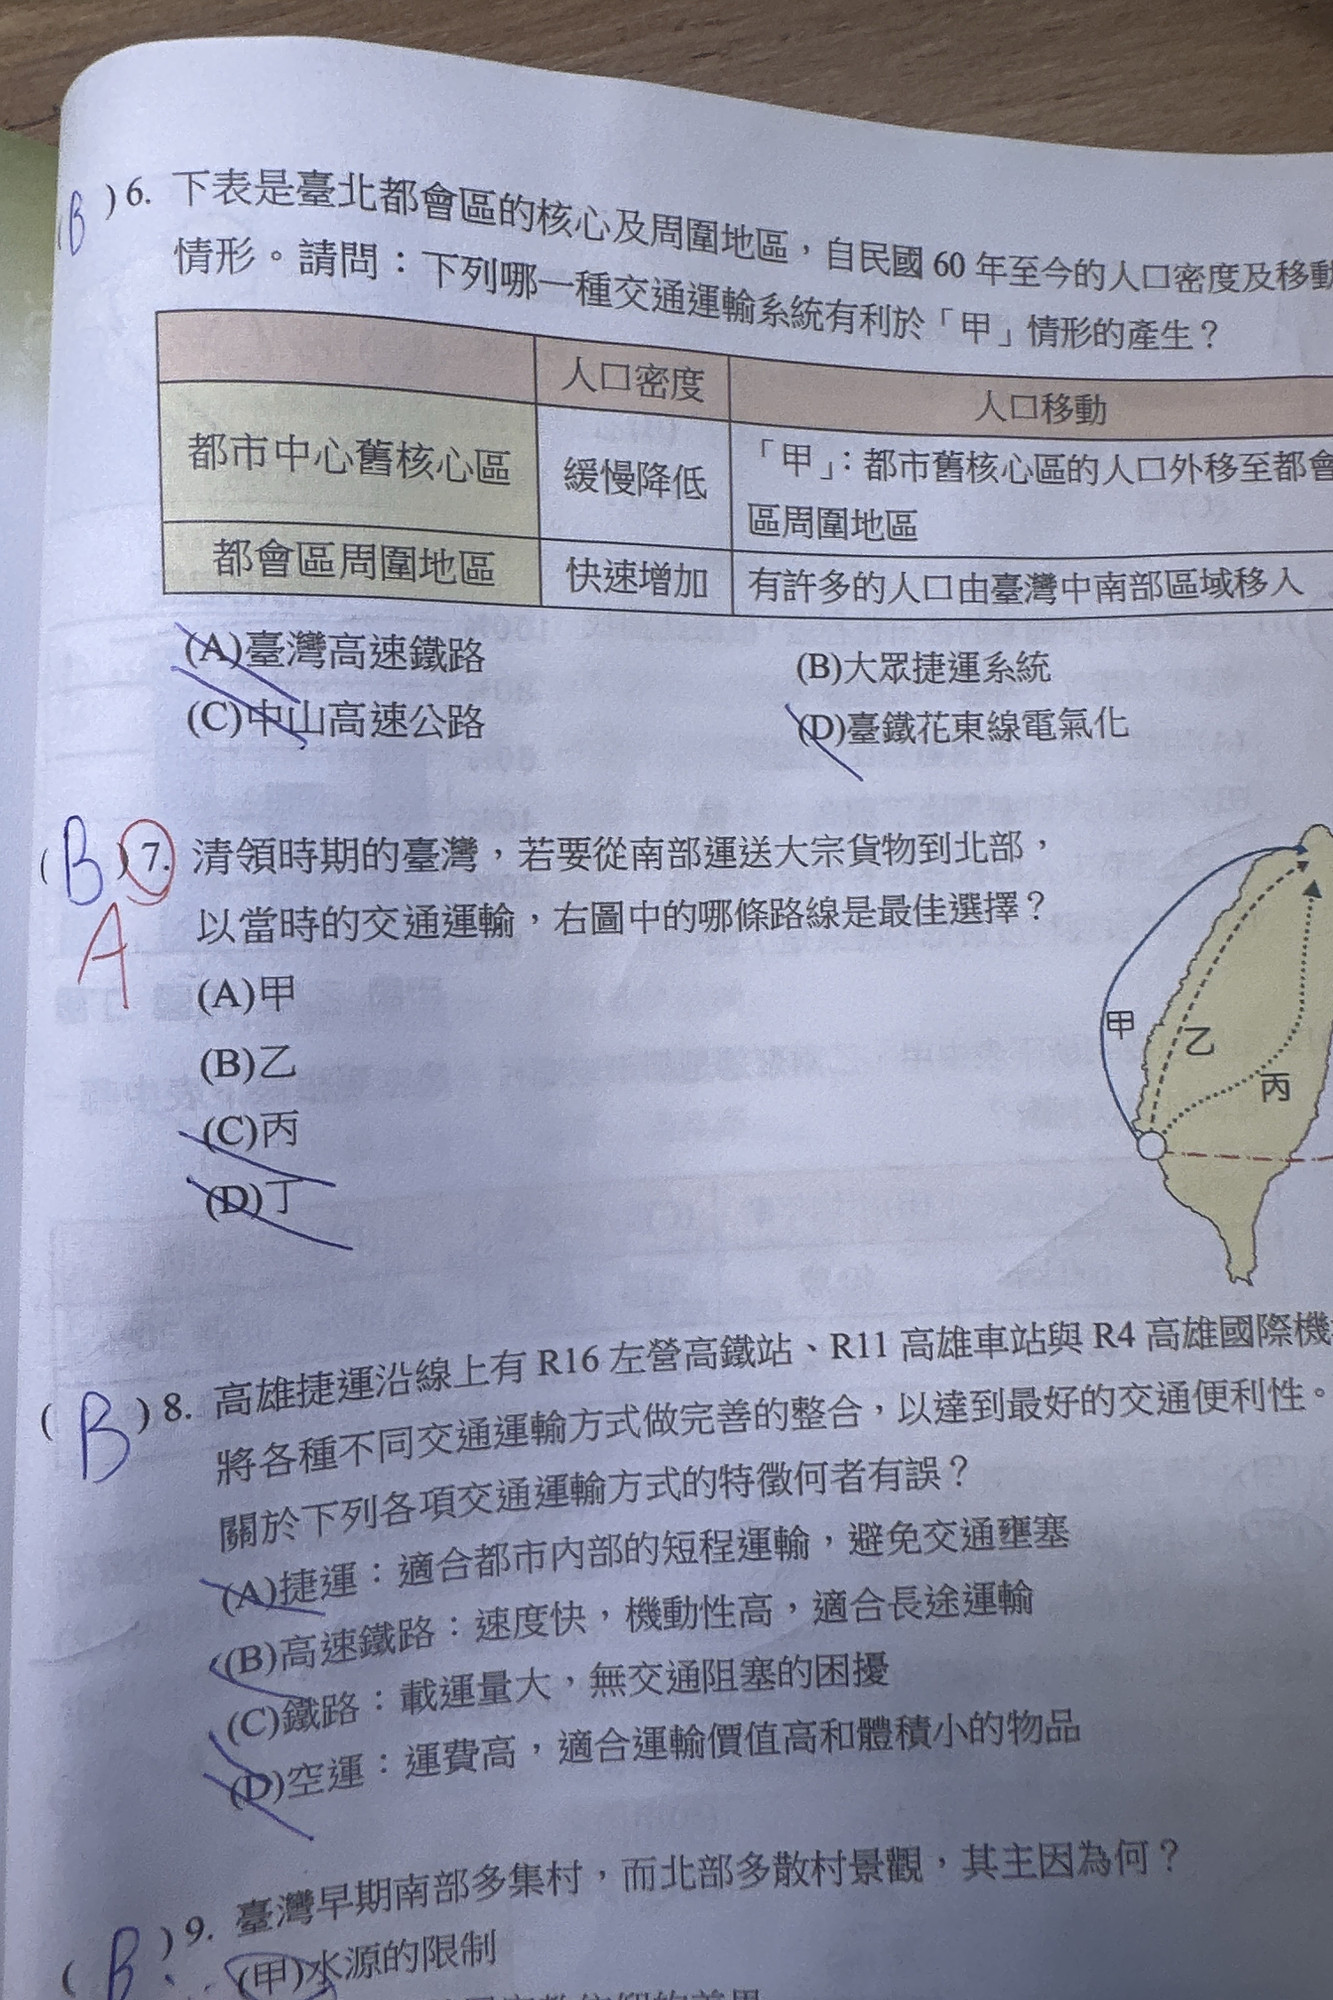 (B)6. 下表是臺北都會區的核心及周圍地區，自民國 60 年至今的人口密度及移動
情形。請問：下列哪一種交通運輸系統有利於「甲」情形的產生？
人口密度 人口移動
都市中心舊核心區 緩慢降低 「甲」：都市舊核心區的人口外移至都會
區周圍地區
都會區周圍地區 快速增加 有許多的人口由臺灣中南部區域移入
(A)臺灣高速鐵路 (B)大眾捷運系統
(C)中山高速公路 (D)臺鐵花東線電氣化
(B)7. 清領時期的臺灣，若要從南部運送大宗貨物到北部，
A
以當時的交通運輸，右圖中的哪條路線是最佳選擇？
(A)甲
(B)乙
(C)丙
(D)丁
甲
乙
丙
(B)8. 高雄捷運沿線上有 R16 左營高鐵站、R11 高雄車站與 R4 高雄國際機
將各種不同交通運輸方式做完善的整合，以達到最好的交通便利性。
關於下列各項交通運輸方式的特徵何者有誤？
(A)捷運：適合都市內部的短程運輸，避免交通壅塞
(B)高速鐵路：速度快，機動性高，適合長途運輸
(C)鐵路：載運量大，無交通阻塞的困擾
(D)空運：運費高，適合運輸價值高和體積小的物品
(B)9. 臺灣早期南部多集村，而北部多散村景觀，其主因為何？
(甲)水源的限制